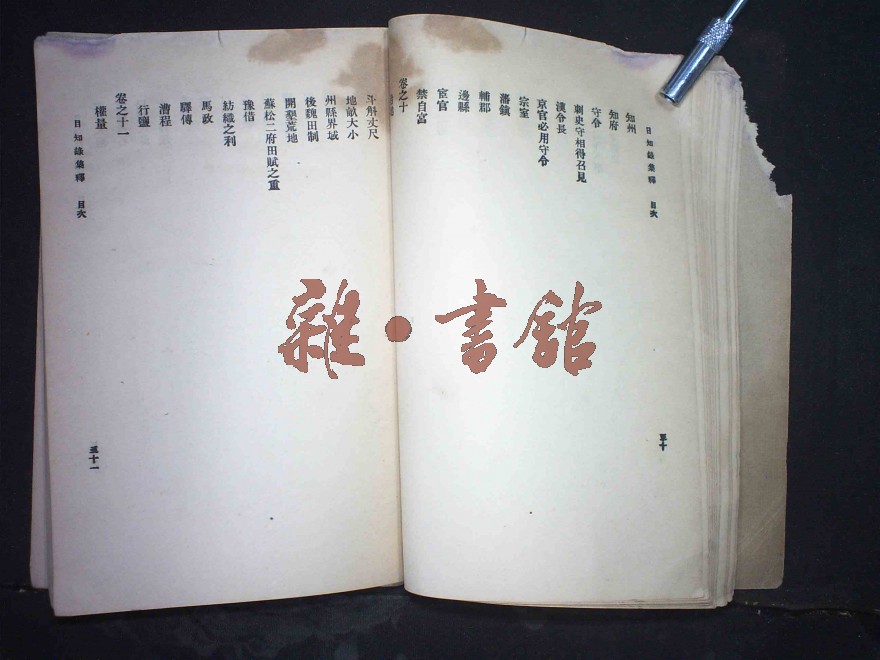 日知錄集釋　目次
知州
知府
守令
刺史守相得召見
漢令長
京官必用守令
宗室
藩鎮
輔郡
邊縣
宦官
禁自宮
卷之十
斗斛丈尺
地畝大小
州縣界域
後魏田制
開墾荒地
蘇松二府田賦之重
豫借
紡織之利
馬政
驛傳
漕程
行鹽
卷之十一
權量
日知錄集釋　目次
五十一
雜·書館